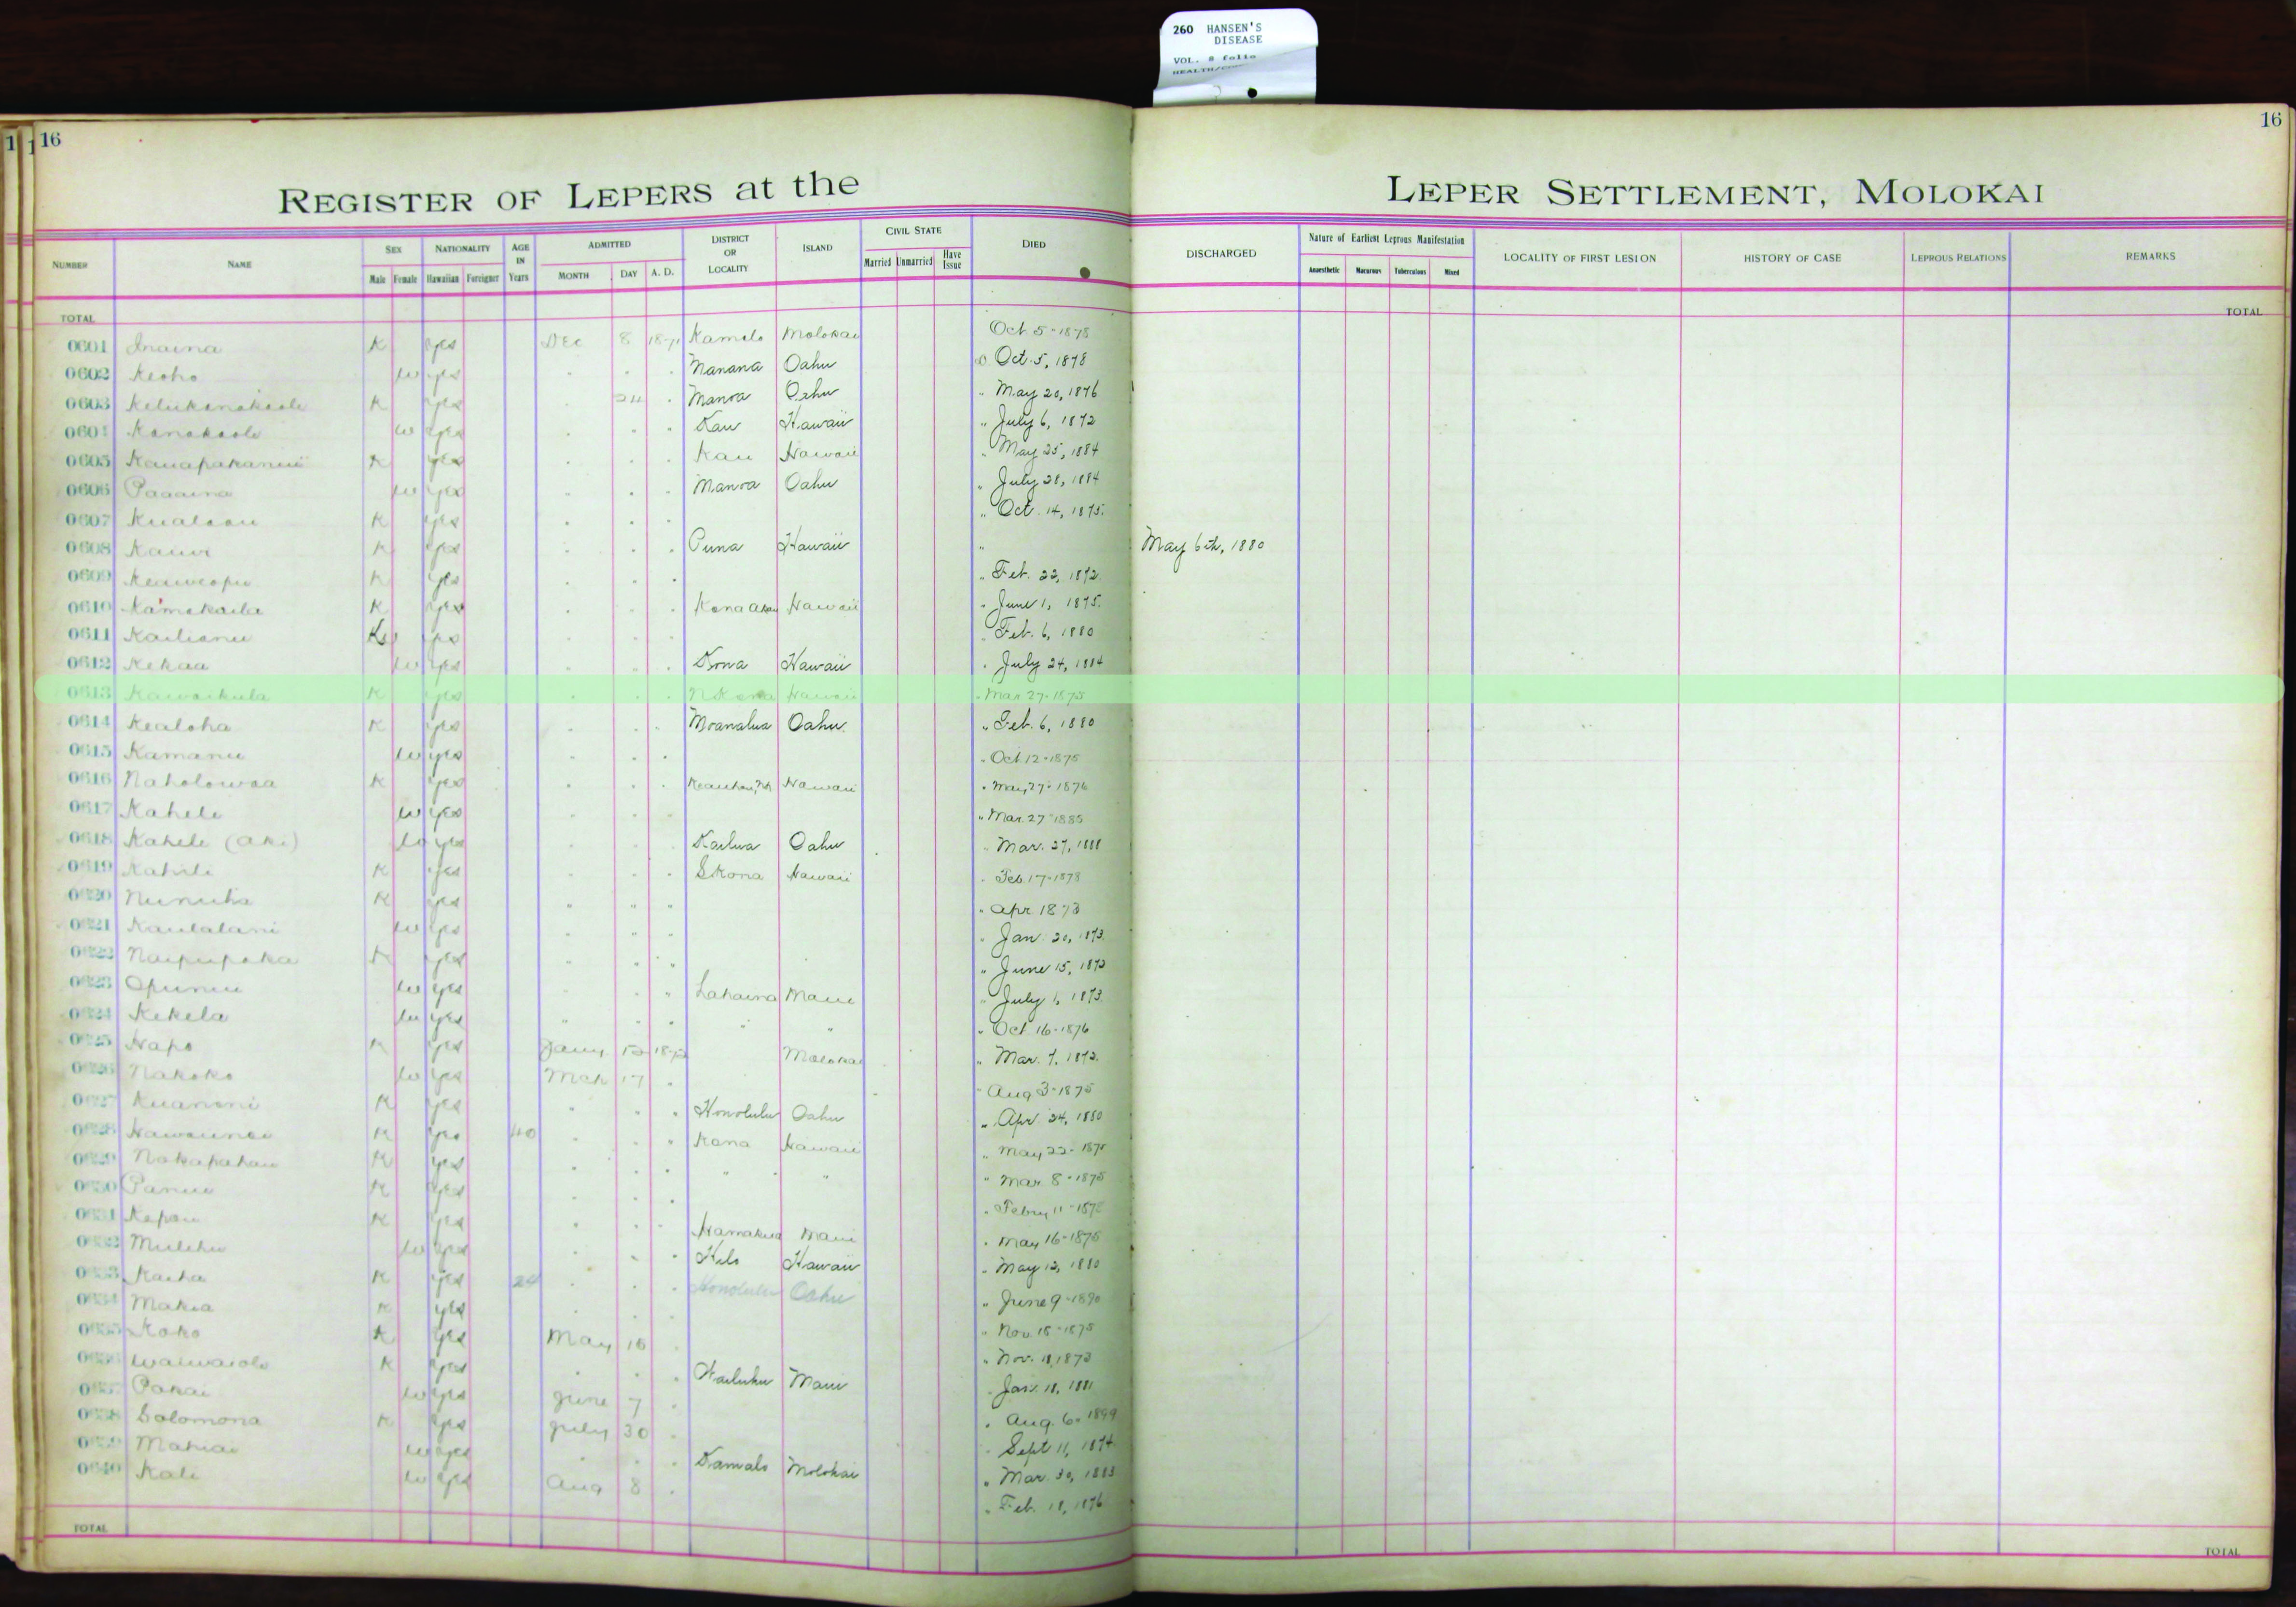 260 HANSEN'S
DISEASE
VOL. 8 folio
16
16
REGISTER OF LEPERS at the LEPER SETTLEMENT, MOLOKAI
NUMBER NAME SEX Male Female NATIONALITY Hawaiian Foreigner AGE IN Years ADMITTED MONTH DAY A. D. DISTRICT OR LOCALITY ISLAND CIVIL STATE Married Unmarried Have Issue DIED DISCHARGED Nature of Earliest Leprous Manifestation Anaesthetic Macurous Tuberculous Mixed LOCALITY OF FIRST LESION HISTORY OF CASE LEPROUS RELATIONS REMARKS
TOTAL TOTAL
0601 Inaina K yes Dec 8 1871 Kamalo Molokai Oct 5-1878
0602 Keoho w yes Manana Oahu Oct. 5, 1878
0603 K yes 24 Manoa Oahu " May 20, 1876
0604 Kanakaole w yes Kau Hawaii " July 6, 1872
0605 K yes Kau Hawaii " May 25, 1884
0606 Paaaina w yes Manoa Oahu " July 28, 1884
0607 K yes " Oct. 14, 1875
0608 Kauwe K yes Puna Hawaii " May 6th, 1880
0609 Keaweopu K yes " Feb. 22, 1872
0610 Kamakaila K yes Kona Akau Hawaii " June 1, 1875
0611 Kailianu yes Feb. 6, 1880
0612 Kekaa w yes Kona Hawaii " July 24, 1884
0613 Kawaikula K yes N Kona Hawaii " Mar 27-1875
0614 Kealoha K yes Moanalua Oahu " Feb. 6, 1880
0615 Kamanu w yes " Oct 12-1875
0616 Naholowaa K yes Keauhou, NK Hawaii " May 27-1876
0617 Kahele w yes " Mar. 27-1885
0618 Kahele (Aki) w yes Kailua Oahu " Mar. 27, 1888
0619 Kahili K yes S Kona Hawaii " Feb. 17-1878
0620 K yes " " " " Apr 1873
0621 Kaulalani w yes " Jan. 20, 1873
0622 Naipupaka K yes " June 15, 1873
0623 Opunui w yes Lahaina Maui " July 1, 1873
0624 Kekela w yes " " " Oct 16-1876
0625 Napo K yes Jany 1872 Molokai " Mar. 7, 1872
0626 Nakoko w yes Mch 17 " Aug 3-1875
0627 Kuanoni K yes Honolulu Oahu " Apr. 24, 1880
0628 K yes 40 Kona Hawaii " May 22-1875
0629 Nakapahau K yes " " " Mar. 8-1875
0630 Panui K yes " Febry 11-1872
0631 Kapau K yes Hamakua Maui " May 16-1875
0632 Mulehu w yes Hilo Hawaii " May 12, 1880
0633 Kaiha K yes 24 Honolulu Oahu " June 9-1890
0634 Makia K yes " Nov. 18-1875
0635 Koko K yes May 16 " Nov. 11, 1873
0636 Waiwaiole K yes Wailuku Maui " Jan. 18, 1881
0637 Pakai w yes June 7 " Aug. 6-1899
0638 Solomona K yes July 30 " Sept 11, 1874
0639 Mahiai w yes Kamalo Molokai " Mar. 30, 1883
0640 Kali w yes Aug 8 " Feb. 18, 1876
TOTAL TOTAL